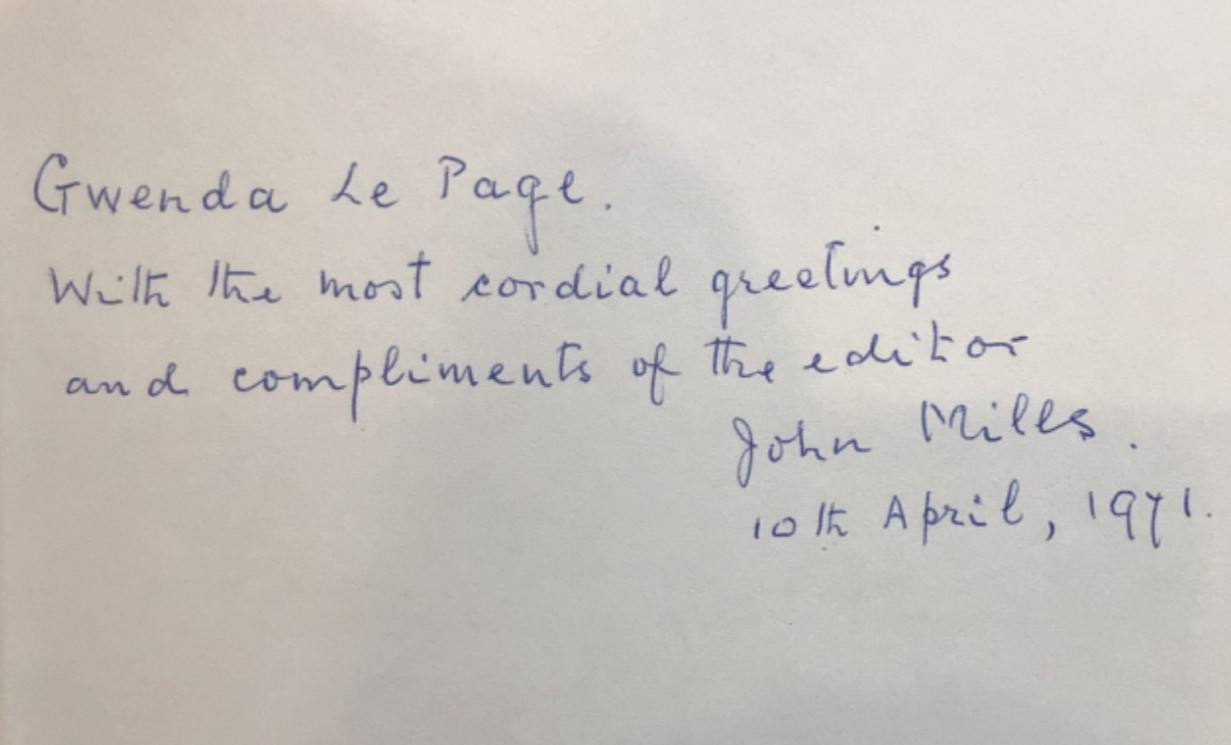 Gwenda Le Page.
With the most cordial greetings
and compliments of the editor
John Mills.
10th April, 1971.